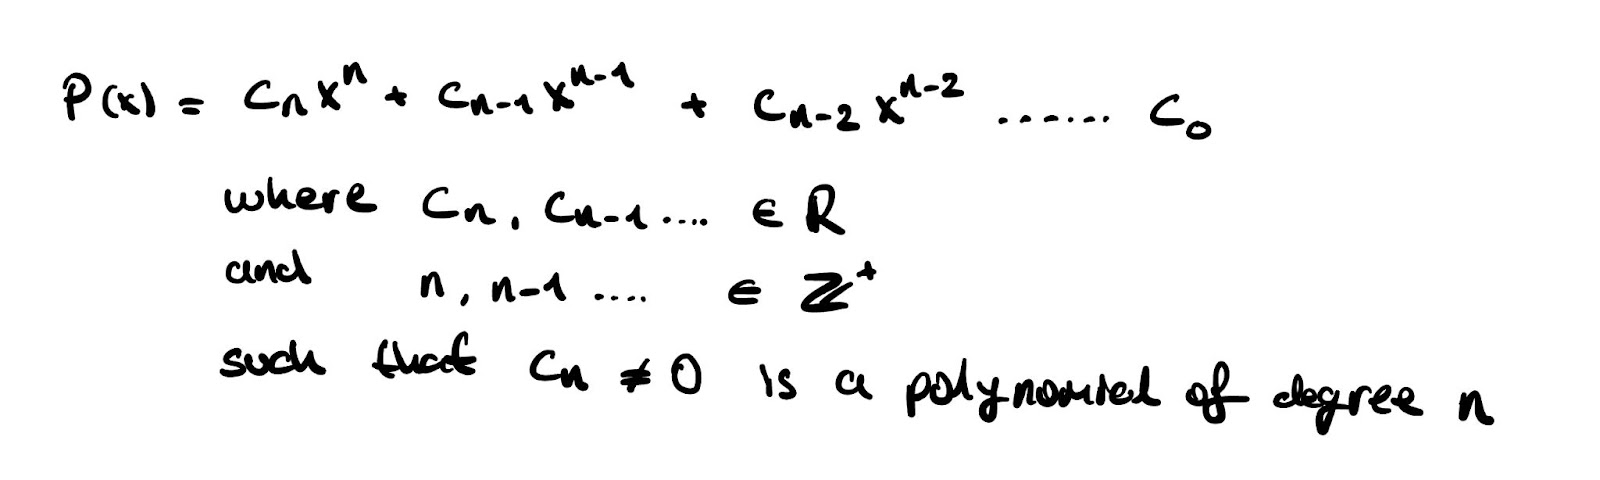 P(x) = Cₙxⁿ + Cₙ₋₁xⁿ⁻¹ + Cₙ₋₂xⁿ⁻² ...... C₀
where Cₙ, Cₙ₋₁.... ∈ R
and n, n-1 .... ∈ ℤ⁺
such that Cₙ ≠ 0 is a polynomial of degree n